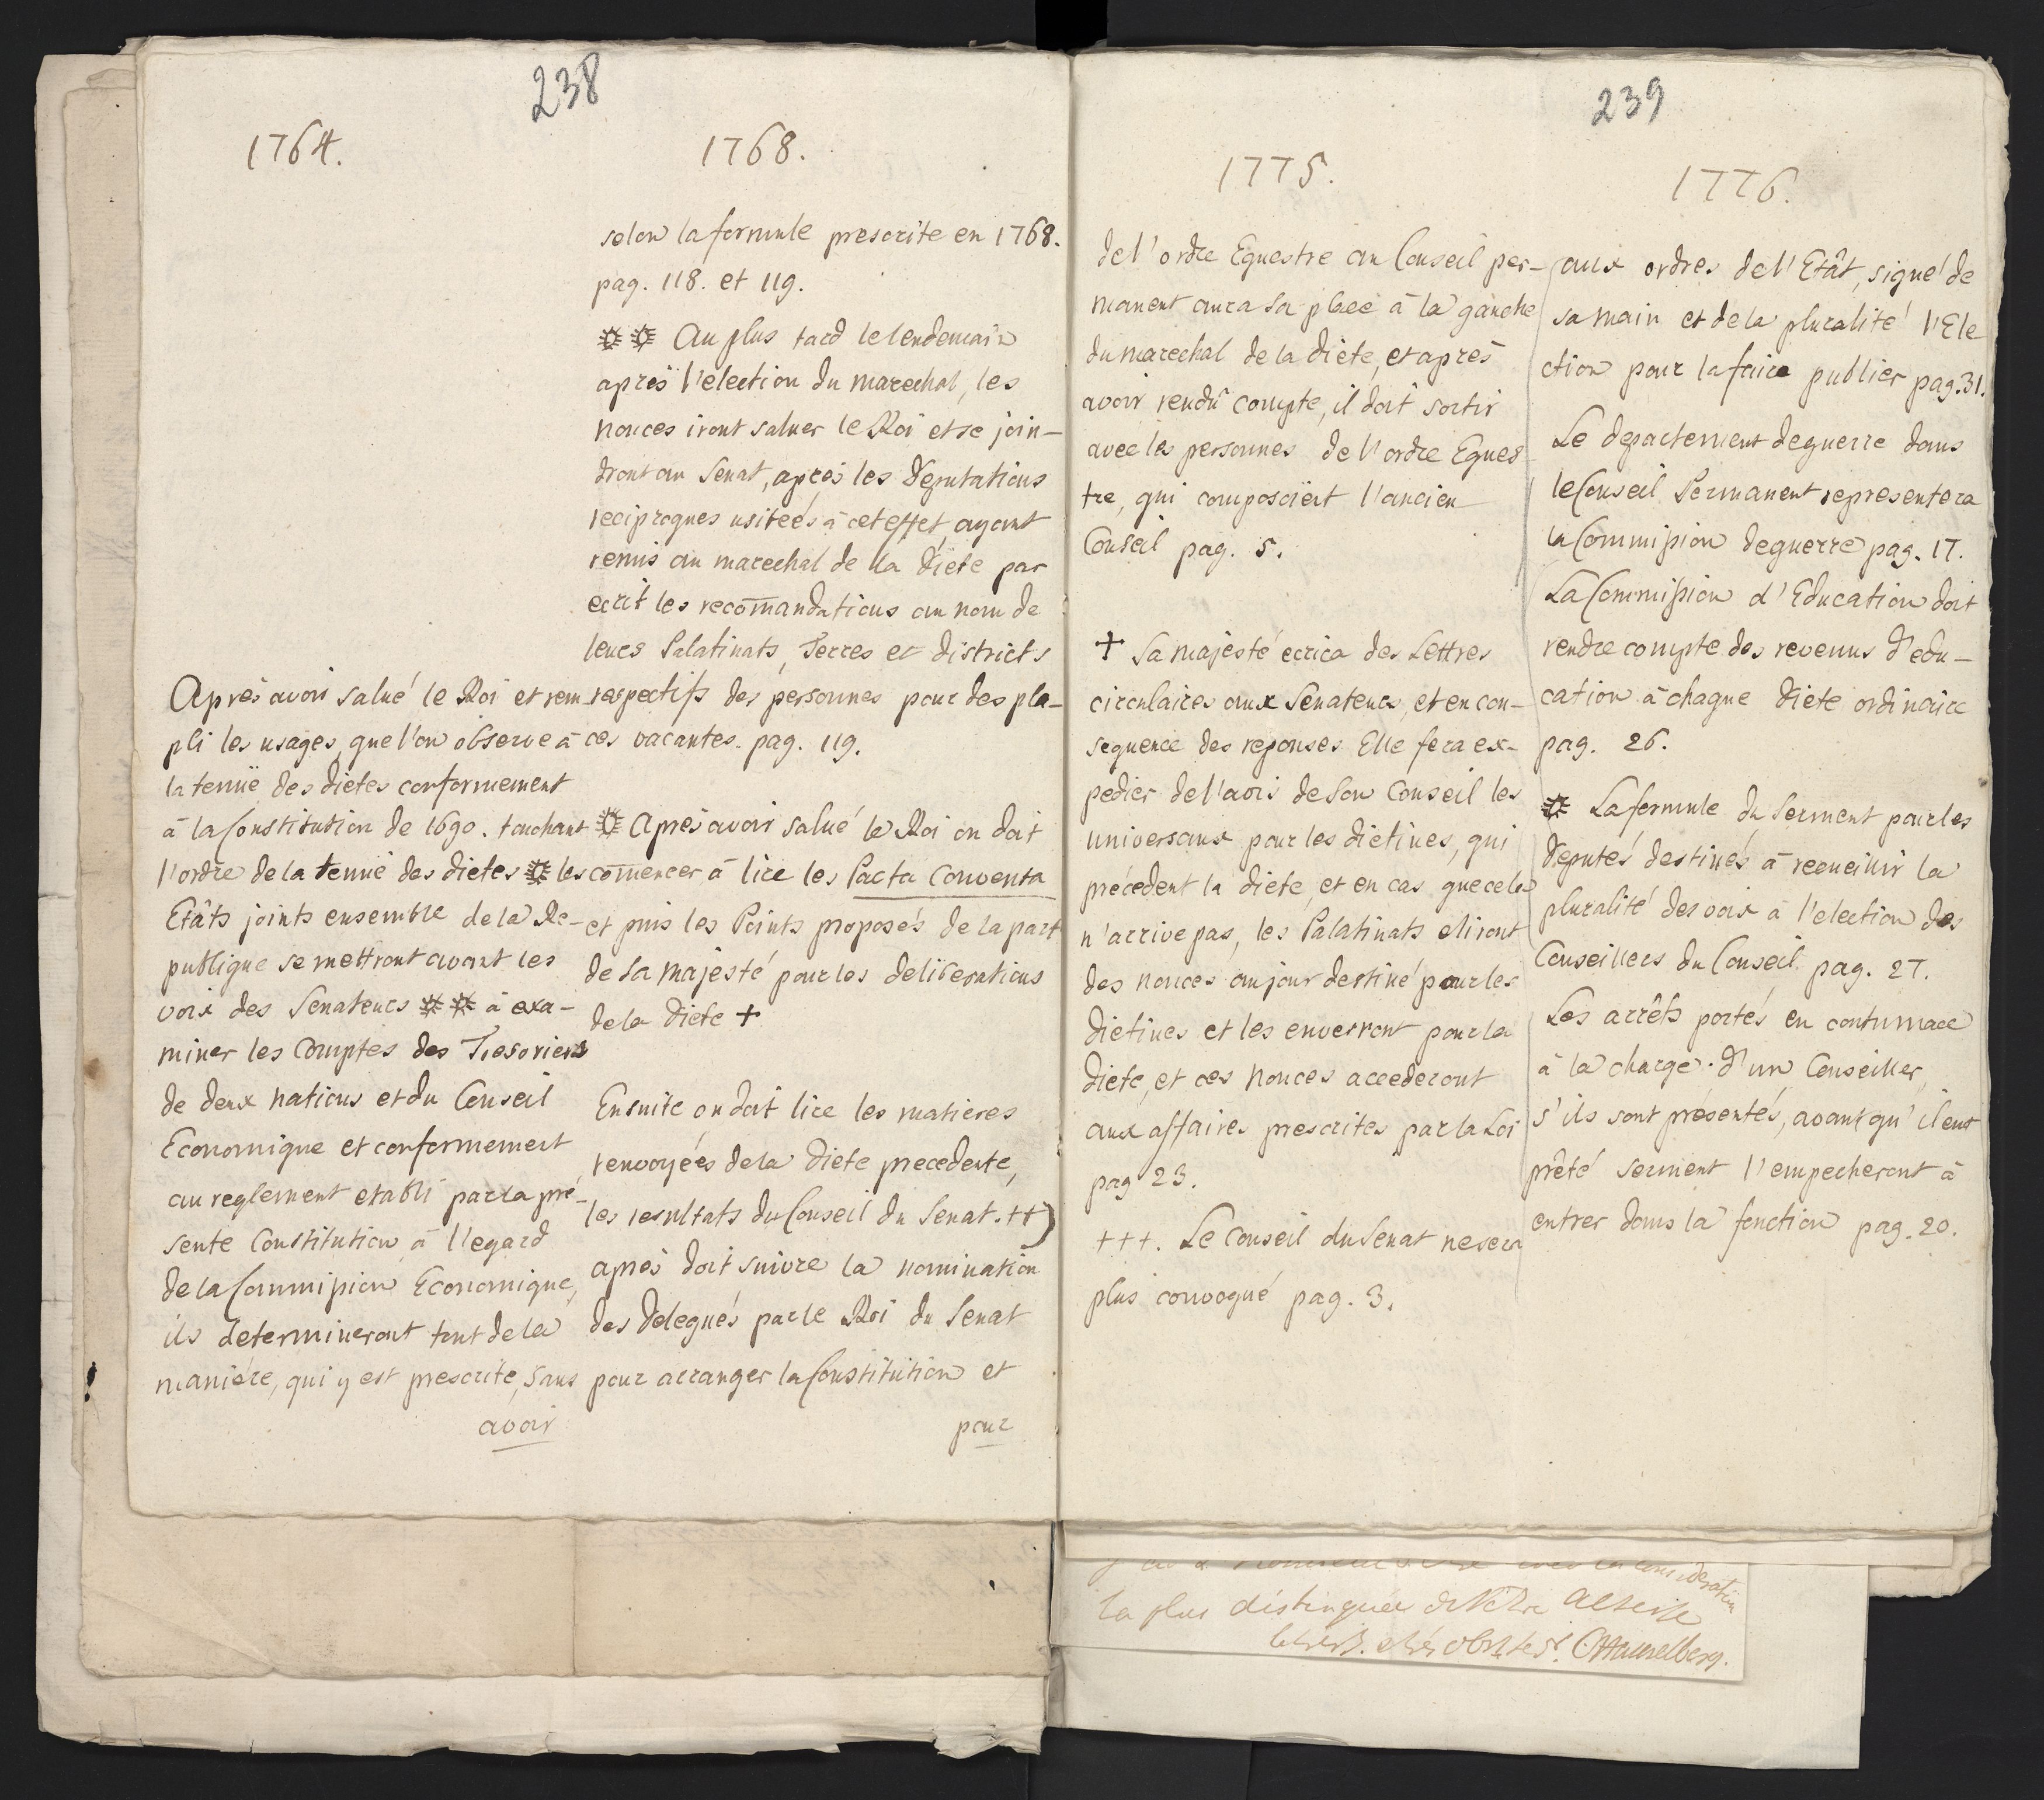 238
1764.
Après avoir salué le Roi et rem-
pli les usages, que l'on observe à
la tenüe des dietes conformement
à la Constitution de 1690. touchant
l'ordre de la tenuë des dietes ☼ les
Etâts joints ensemble de la Re-
publique se mettront avant les
voix des Senateurs ☼ ☼ à exa-
miner les Comptes des Tresoriers
de deux nations et du Conseil
Economique et conformement
au reglement etabli par la pré-
sente Constitution à l'egard
de la Commission Economique,
ils determineront tout de la
maniére, qui y est prescrite, sans
avoir
1768.
selon la formule prescrite en 1768.
pag. 118. et 119.
☼ ☼ Au plus tard le lendemain
après l'election du marechal, les
nonces iront saluer le Roi et se join-
dront au Senat, après les Deputations
reciproques usiteés à cet effet, ayant
remis au marechal de la Diéte par
ecrit les recom̄andations au nom de
leurs Palatinats, Terres et Districts
respectifs des personnes pour des pla-
ces vacantes. pag. 119.
☼ Après avoir salué le Roi on doit
com̄encer à lire les Pacta Conventa
et puis les Points proposés de la part
de Sa majesté pour les deliberations
de la Diete +
Ensuite on doit lire les matieres
renvoyées de la Diete precedente,
les resultats du Conseil du Senat. ++)
après doit suivre la nomination
des Delegués par le Roi du Senat
pour arranger la Constitution et
pour
239
1775.
de l'ordre Equestre au Conseil per-
manent aura sa place à la gauche
du marechal de la diéte, et après
avoir rendû compte, il doit sortir
avec les personnes de l'ordre Eques-
tre, qui composoient l'ancien
Conseil pag. 5.
+ Sa majesté ecrira des Lettres
circulaires aux Senateurs, et en con-
sequence des reponses Elle fera ex-
pedier de l'avis de Son Conseil les
universaux pour les diétines, qui
précedent la diéte, et en cas que cela
n'arrive pas, les Palatinats eliront
des nonces au jour destiné pour les
Diétines et les enverront pour la
Diéte, et ces Nonces accederont
aux affaires prescrites par la Loi
pag 23.
+++. Le Conseil du Senat ne sera
plus convoqué pag. 3.
1776.
aux ordres de l'Etât, signé de
sa main et de la pluralité l'Ele
ction pour la faire publier pag. 31.
Le departement de guerre dans
le Conseil Permanent representera
la Commission de guerre pag. 17.
La Commission d'Education doit
rendre compte des revenus d'edu-
cation à chaque Diéte ordinaire
pag. 26.
☼ La formule du Serment pour les
Deputés destinés à recueillir la
pluralité des voix à l'election des
Conseillers du Conseil pag. 27.
Les arrêts portés en contumace
à la charge d'un Conseiller,
s'ils sont présentés, avant qu'il eut
prêté serment l'empecheront à
entrer dans la fonction pag. 20.
la consideration
la plus distinguée de Vôtre Altesse